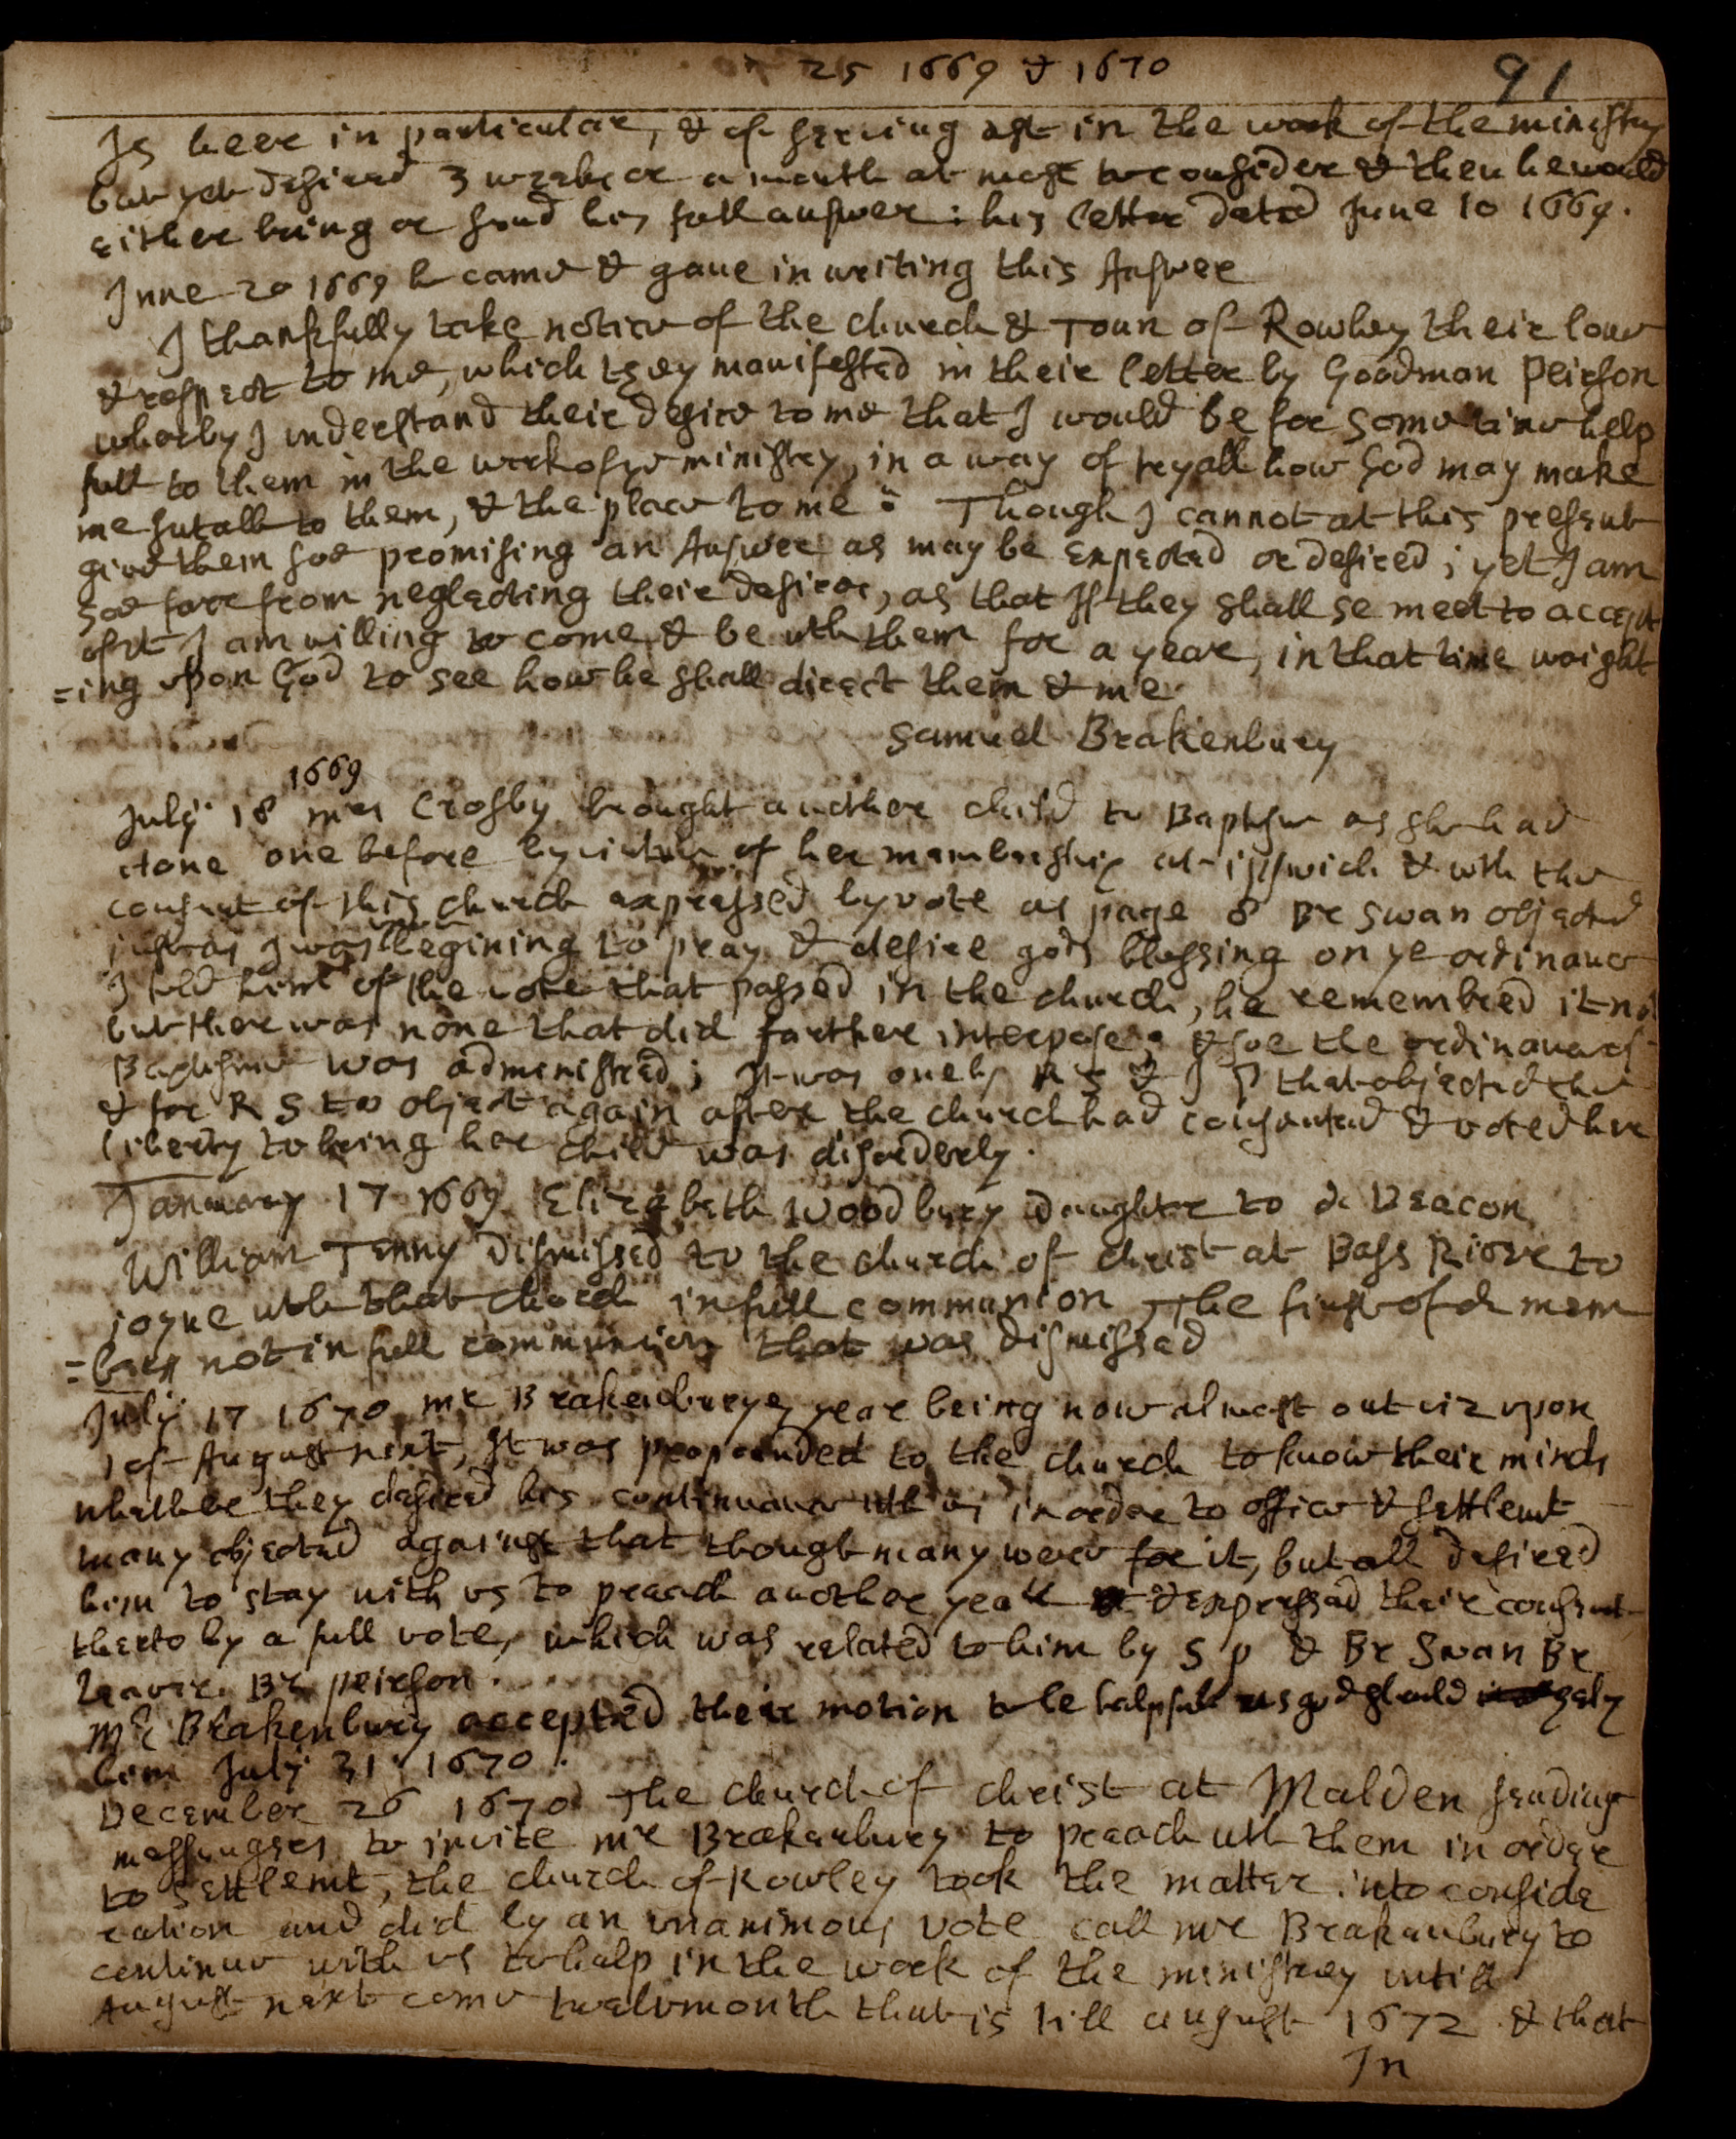 25 1669 & 1670
91
Is heere in particular, & of serving ast in the work of the ministry
but yet desired 3 weeks or a month at most to consider & then he would
either bring or send his full answer : his letter dated June 10 1669.
June 20 1669 he came & gave in writing this Answer
I thankfully take notice of the church & Toun of Rowley their love
& respect to me, which they manifested in their letter by Goodman Peirson
wherby I understand their desire to me that I would be for some time help
full to them in the work of ye ministrey, in a way of tryall how God may make
me sutable to them, & the place to me : Though I cannot at this present
give them soe promising an Answer as may be expected or desired ; yet I am
soe farre from neglecting their desires, as that If they shall se meet to accept
of it I am willing to come & be wth them for a yeare, in that time waight
=ing upon God to see how he shall direct them & me.
Samuel Brakenbury
1669
July 18 mrs Crosby brought another child to Baptisme as she had
done one before by virtue of her membership at ipswich & wth the
consent of this church expressed by vote as page 8 Br Swan objected
just as I was begining to pray & desire gods blessing on ye ordinance
I told him of the vote that passed in the church, he remembred it not
but there was none that did farther interpose ; & soe the ordinance of
Baptisme was administred ; It was onely R S & J P that objected then
& for R S to object again after the church had consented & voted her
liberty to bring her child was disorderly.
January 17 1669 Elizabeth Woodbury daughter to Deacon
William Tenny Dismissed to the church of christ at Bass River to
joyne wth that church in full communion The first of mem
=bers not in full communion that was dismissed
July 17 1670 mr Brakenburyes year being now almost out viz upon
1 of August next, It was propounded to the church to know their minds
whether they desired his continuance wth us in order to office & settlemt
many objected against that though many were for it, but all desired
him to stay with us to preach another year & expressed their consent
therto by a full vote, which was related to him by S P & Br Swan Br
Leaver. Br peirson.
Mr Brakenbury accepted their motion to be helpfull as god should help
him July 31 1670.
December 26 1670 The church of christ at Malden sending
messengers to invite mr Brakenbury to preach wth them in order
to settlemt, the church of Rowley took the matter into conside
ration and did by an unanimous vote call mr Brakenbury to
continue with us to help in the work of the ministrey untill
August next come twelvmonth that is till august 1672 & that
In